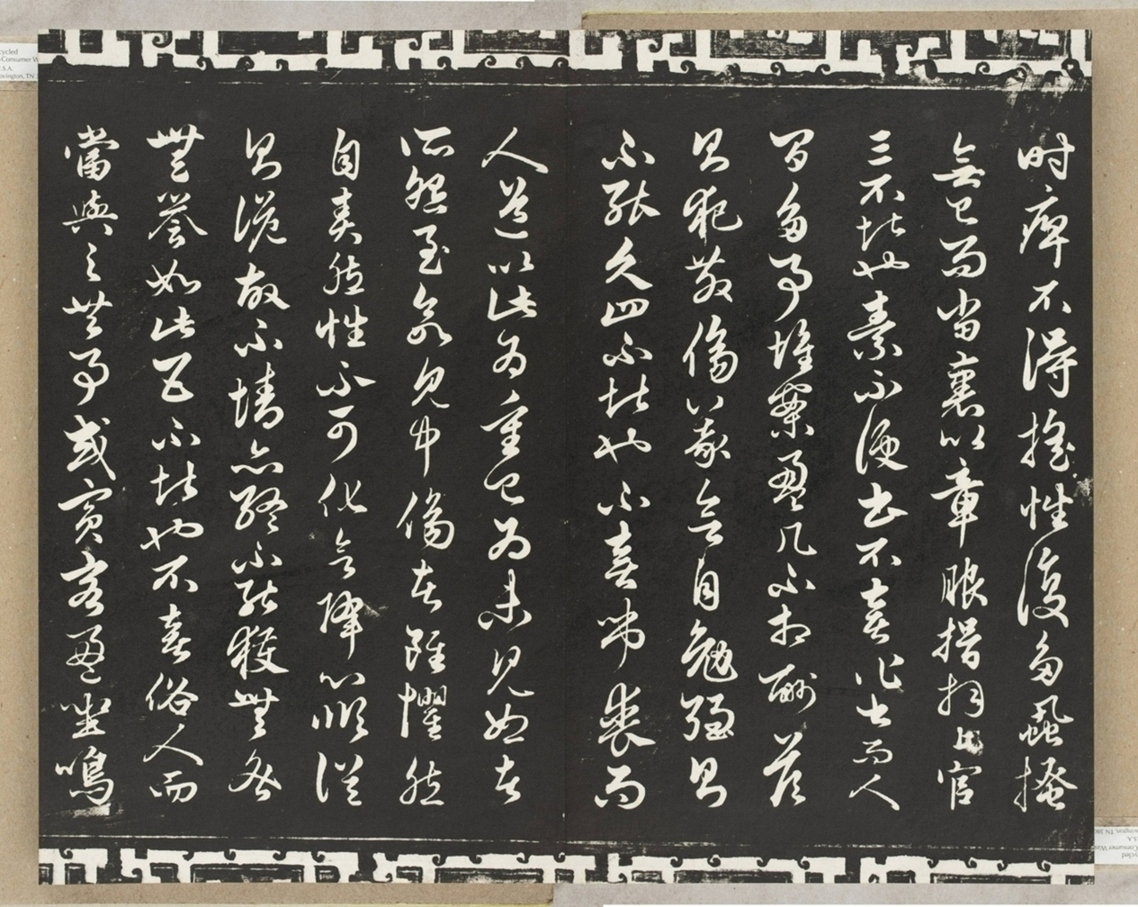 時痺不得搖性復多蝨搔
無已而當裹以章服揖拜上官
三不堪也素不便書不喜作書而人
間多事堆案盈几不相酬答
則犯教傷義欲自勉強則
不能久四不堪也不喜吊喪而
人道以此為重已為未見恕者
所怨至欲見中傷者雖懼然
自責然性不可化欲降心順從
則詭故不情亦終不能獲無咎
無譽如此五不堪也不喜俗人而
當與之共事或賓客盈坐鳴